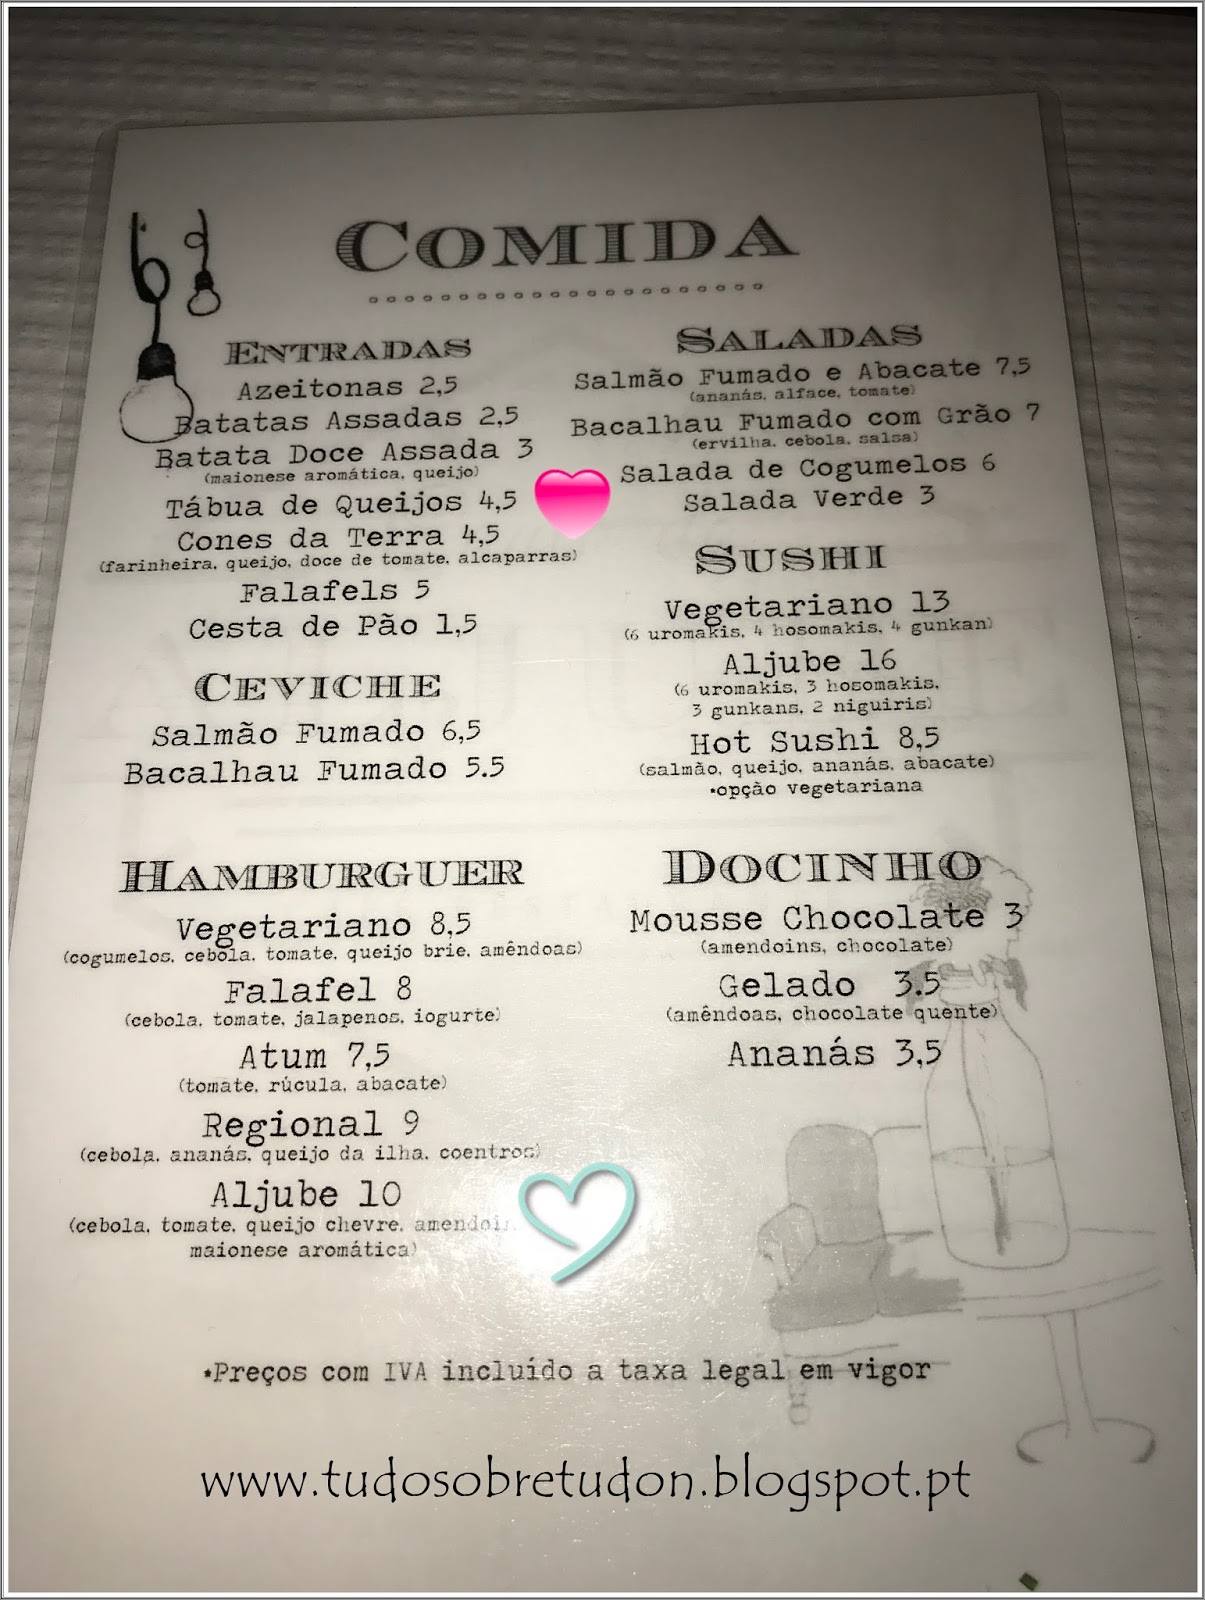 COMIDA
ENTRADAS
Azeitonas 2,5
Batatas Assadas 2,5
Batata Doce Assada 3
(maionese aromática, queijo)
Tábua de Queijos 4,5
Cones da Terra 4,5
(farinheira, queijo, doce de tomate, alcaparras)
Falafels 5
Cesta de Pão 1,5
CEVICHE
Salmão Fumado 6,5
Bacalhau Fumado 5.5
HAMBURGUER
Vegetariano 8,5
(cogumelos, cebola, tomate, queijo brie, amêndoas)
Falafel 8
(cebola, tomate, jalapenos, iogurte)
Atum 7,5
(tomate, rúcula, abacate)
Regional 9
(cebola, ananás, queijo da ilha, coentros)
Aljube 10
(cebola, tomate, queijo chevre,
maionese aromática)
SALADAS
Salmão Fumado e Abacate 7,5
(ananás, alface, tomate)
Bacalhau Fumado com Grão 7
(ervilha, cebola, salsa)
Salada de Cogumelos 6
Salada Verde 3
SUSHI
Vegetariano 13
(6 uromakis, 4 hosomakis, 4 gunkan)
Aljube 16
(6 uromakis, 3 hosomakis,
3 gunkans, 2 niguiris)
Hot Sushi 8,5
(salmão, queijo, ananás, abacate)
*opção vegetariana
DOCINHO
Mousse Chocolate 3
(amendoins, chocolate)
Gelado 3.5
(amêndoas, chocolate quente)
Ananás 3,5
*Preços com IVA incluído a taxa legal em vigor
www.tudosobretudon.blogspot.pt